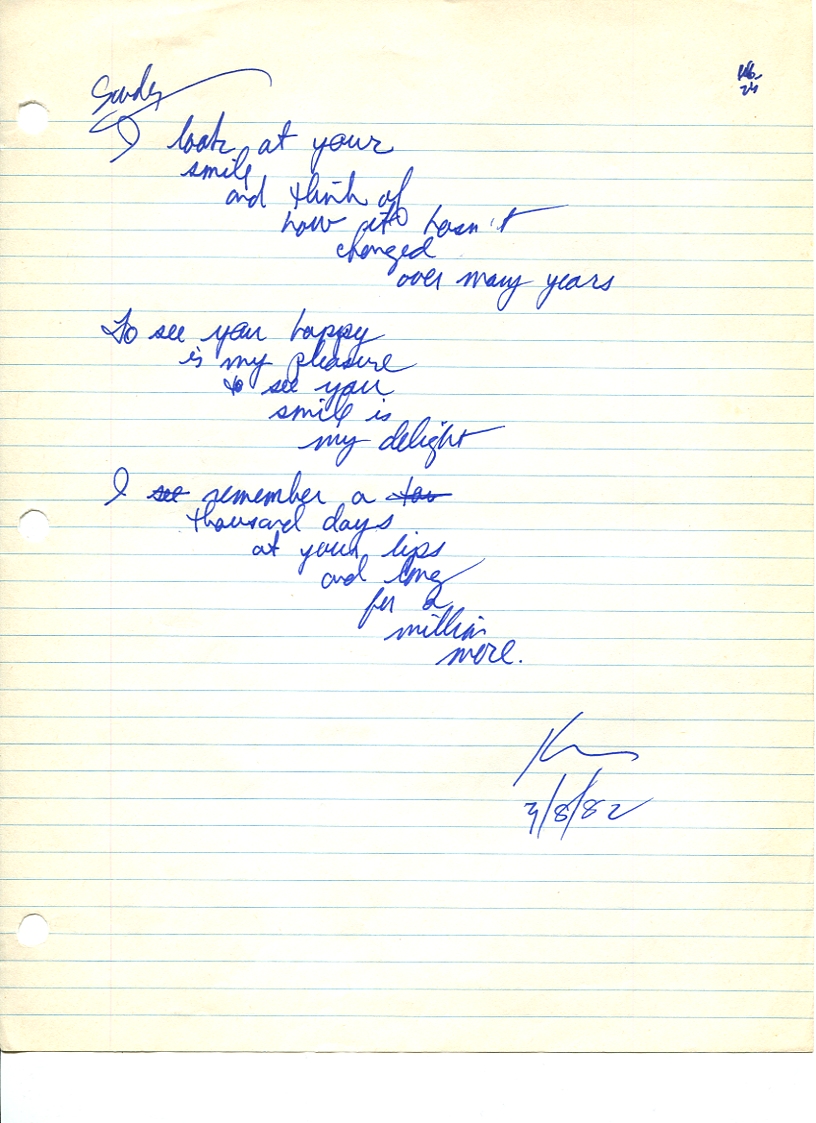 Sandy
I look at your
smile
and think of
how it hasn't
changed
over many years
To see you happy
is my pleasure
to see you
smile is
my delight
I see remember a
thousand days
at your lips
and long
for a
million
more.
3/8/82